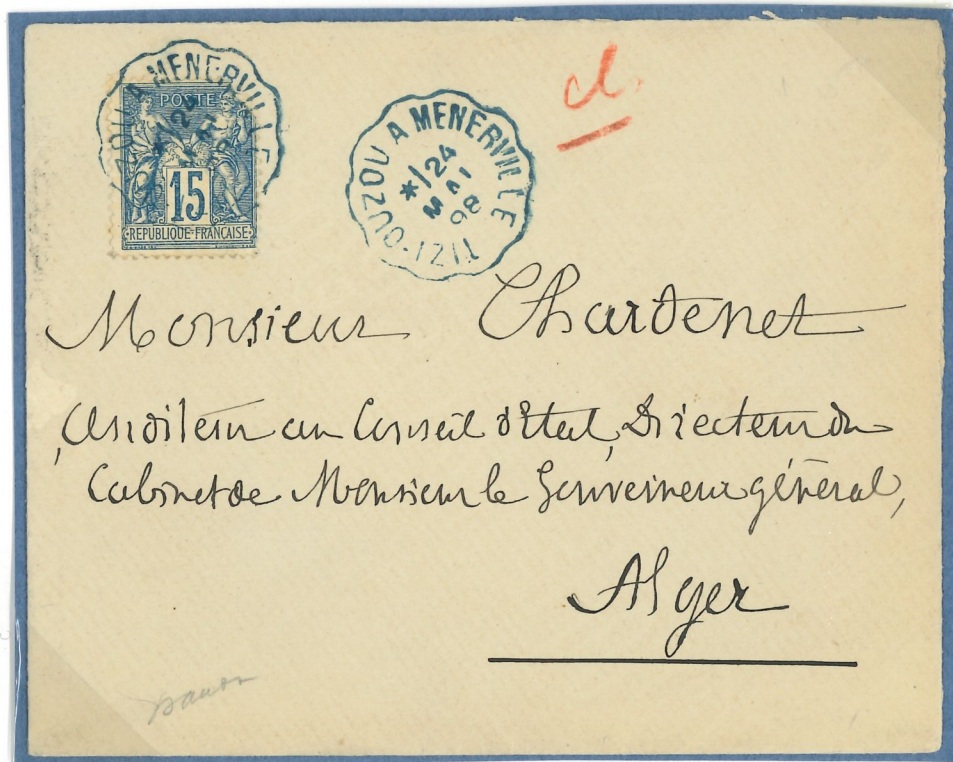 POSTE
15
REPUBLIQUE FRANÇAISE
OUZOU A MENERVILLE
24
TIZI-OUZOU A MENERVILLE
*/24
MAI
98
cl.
Monsieur Chardenet
Auditeur au Conseil d'Etat, Directeur du
Cabinet de Monsieur le Gouverneur général,
Alger